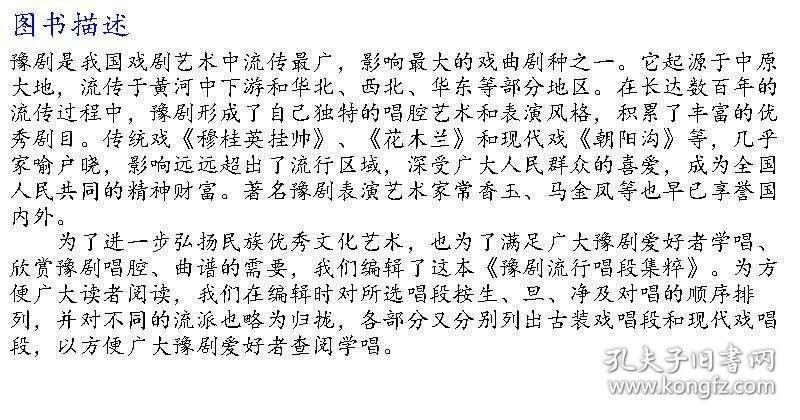 图书描述
豫剧是我国戏剧艺术中流传最广，影响最大的戏曲剧种之一。它起源于中原
大地，流传于黄河中下游和华北、西北、华东等部分地区。在长达数百年的
流传过程中，豫剧形成了自己独特的唱腔艺术和表演风格，积累了丰富的优
秀剧目。传统戏《穆桂英挂帅》、《花木兰》和现代戏《朝阳沟》等，几乎
家喻户晓，影响远远超出了流行区域，深受广大人民群众的喜爱，成为全国
人民共同的精神财富。著名豫剧表演艺术家常香玉、马金凤等也早已享誉国
内外。
为了进一步弘扬民族优秀文化艺术，也为了满足广大豫剧爱好者学唱、
欣赏豫剧唱腔、曲谱的需要，我们编辑了这本《豫剧流行唱段集粹》。为方
便广大读者阅读，我们在编辑时对所选唱段桉生、旦、净及对唱的顺序排
列，并对不同的流派也略为归拢，各部分又分别列出古装戏唱段和现代戏唱
段，以方便广大豫剧爱好者查阅学唱。
孔夫子旧书网
www.kongfz.com